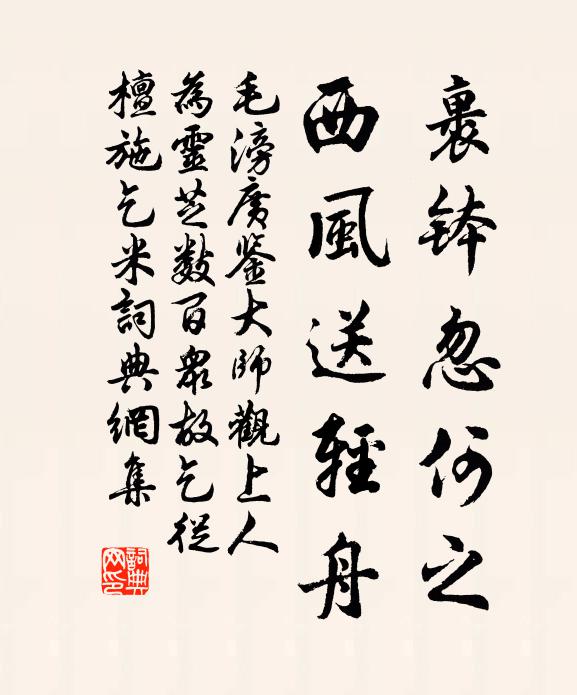 裹鉢忽何之
西風送輕舟
毛滂廣鉴大師觀上人
為靈芝數百衆故乞從
檀施乞米詞典網集
詞典
网印